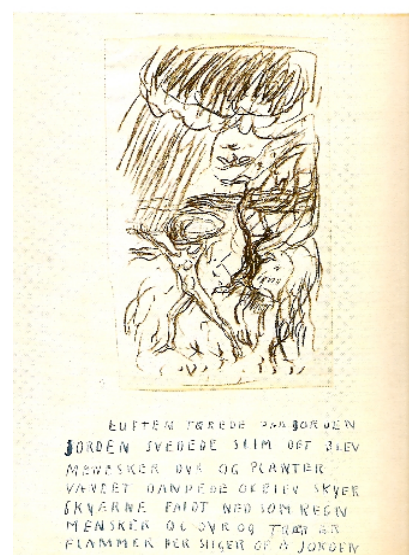 LUFTEN TÆREDE PAA JORDEN
JORDEN SVEDEDE SLIM DET BLEV
MENESKER DYR OG PLANTER
VAVEET DANPEDE OG BLEV SKYER
SKYERNE FALDT NED SOM REGN
MENSKER OG DYR OG TRÆR ER
FLAMMER DER STIGER OP A JORDEN